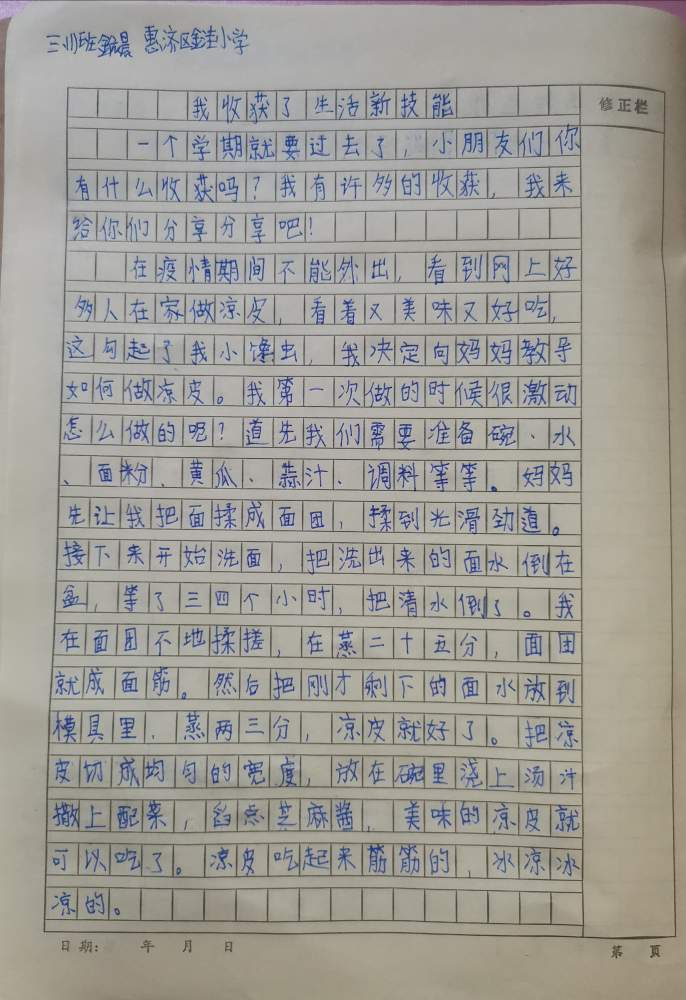 三川班 晨 惠济区金洼小学
我收获了生活新技能
修正栏
一个学期就要过去了，小朋友们你
有什么收获吗？我有许多的收获，我来
给你们分享分享吧！
在疫情期间不能外出，看到网上好
多人在家做凉皮，看着又美味又好吃，
这勾起了我小馋虫，我决定向妈妈教导
如何做凉皮。我第一次做的时候很激动
怎么做的呢？道先我们需要准备碗、水
、面粉、黄瓜、蒜汁、调料等等。妈妈
先让我把面揉成面团，揉到光滑劲道。
接下来开始洗面，把洗出来的面水倒在
盆，等了三四个小时，把清水倒了。我
在面团不地揉搓，在蒸二十五分，面团
就成面筋。然后把刚才剩下的面水放到
模具里，蒸两三分，凉皮就好了。把凉
皮切成均匀的宽度，放在碗里浇上汤汁
撒上配菜，舀点芝麻酱，美味的凉皮就
可以吃了。凉皮吃起来筋筋的，冰凉冰
凉的。
日期： 年 月 日
第 页